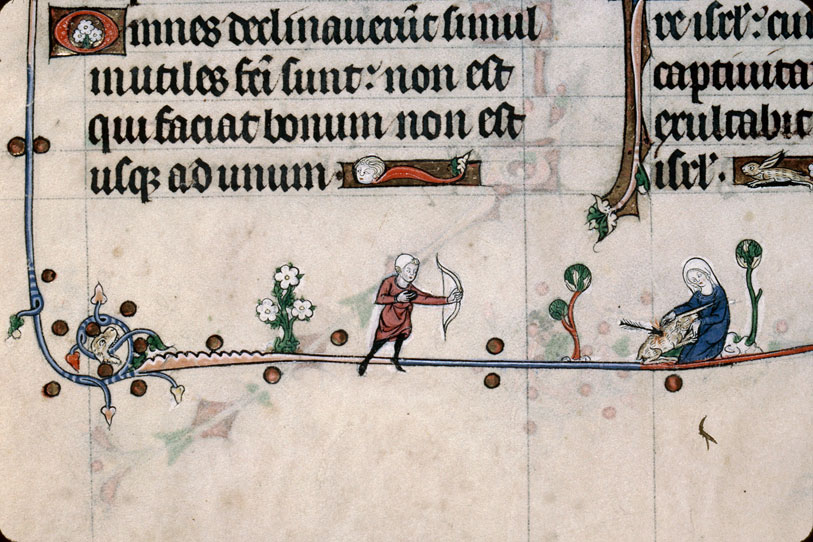 Omnes declinauerūt simul
inutiles fc̄i sunt: non est
qui faciat bonum non est
usqꝫ ad unum.
re isrl̄: cui
captiuita
exultabit
isrl̄.